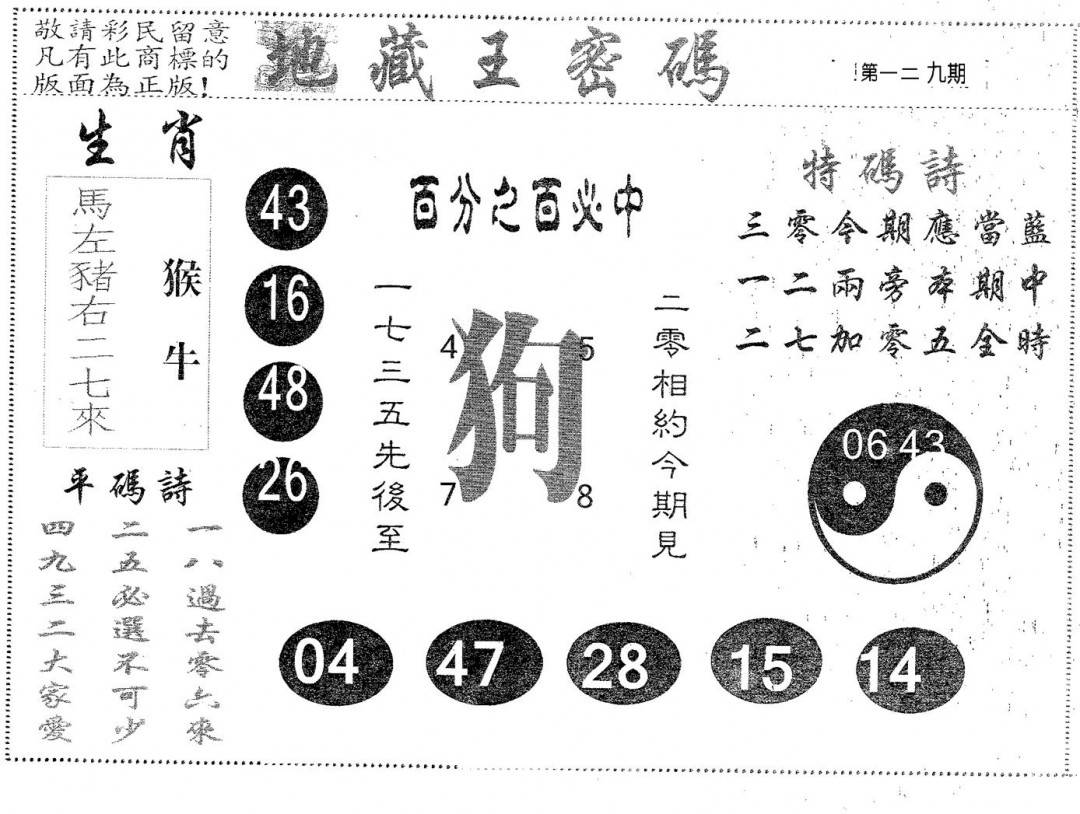 敬請彩民留意
凡有此商標的
版面為正版!
地藏王密碼
第一二九期
生肖
馬左豬右二七來
猴牛
43
16
48
26
百分之百必中
一七三五先後至
狗
4
5
7
8
二零相約今期見
特碼詩
三零今期應當藍
一二兩旁本期中
二七加零五全時
06 43
平碼詩
一八過去零六來
二五必選不可少
四九三二大家愛
04
47
28
15
14